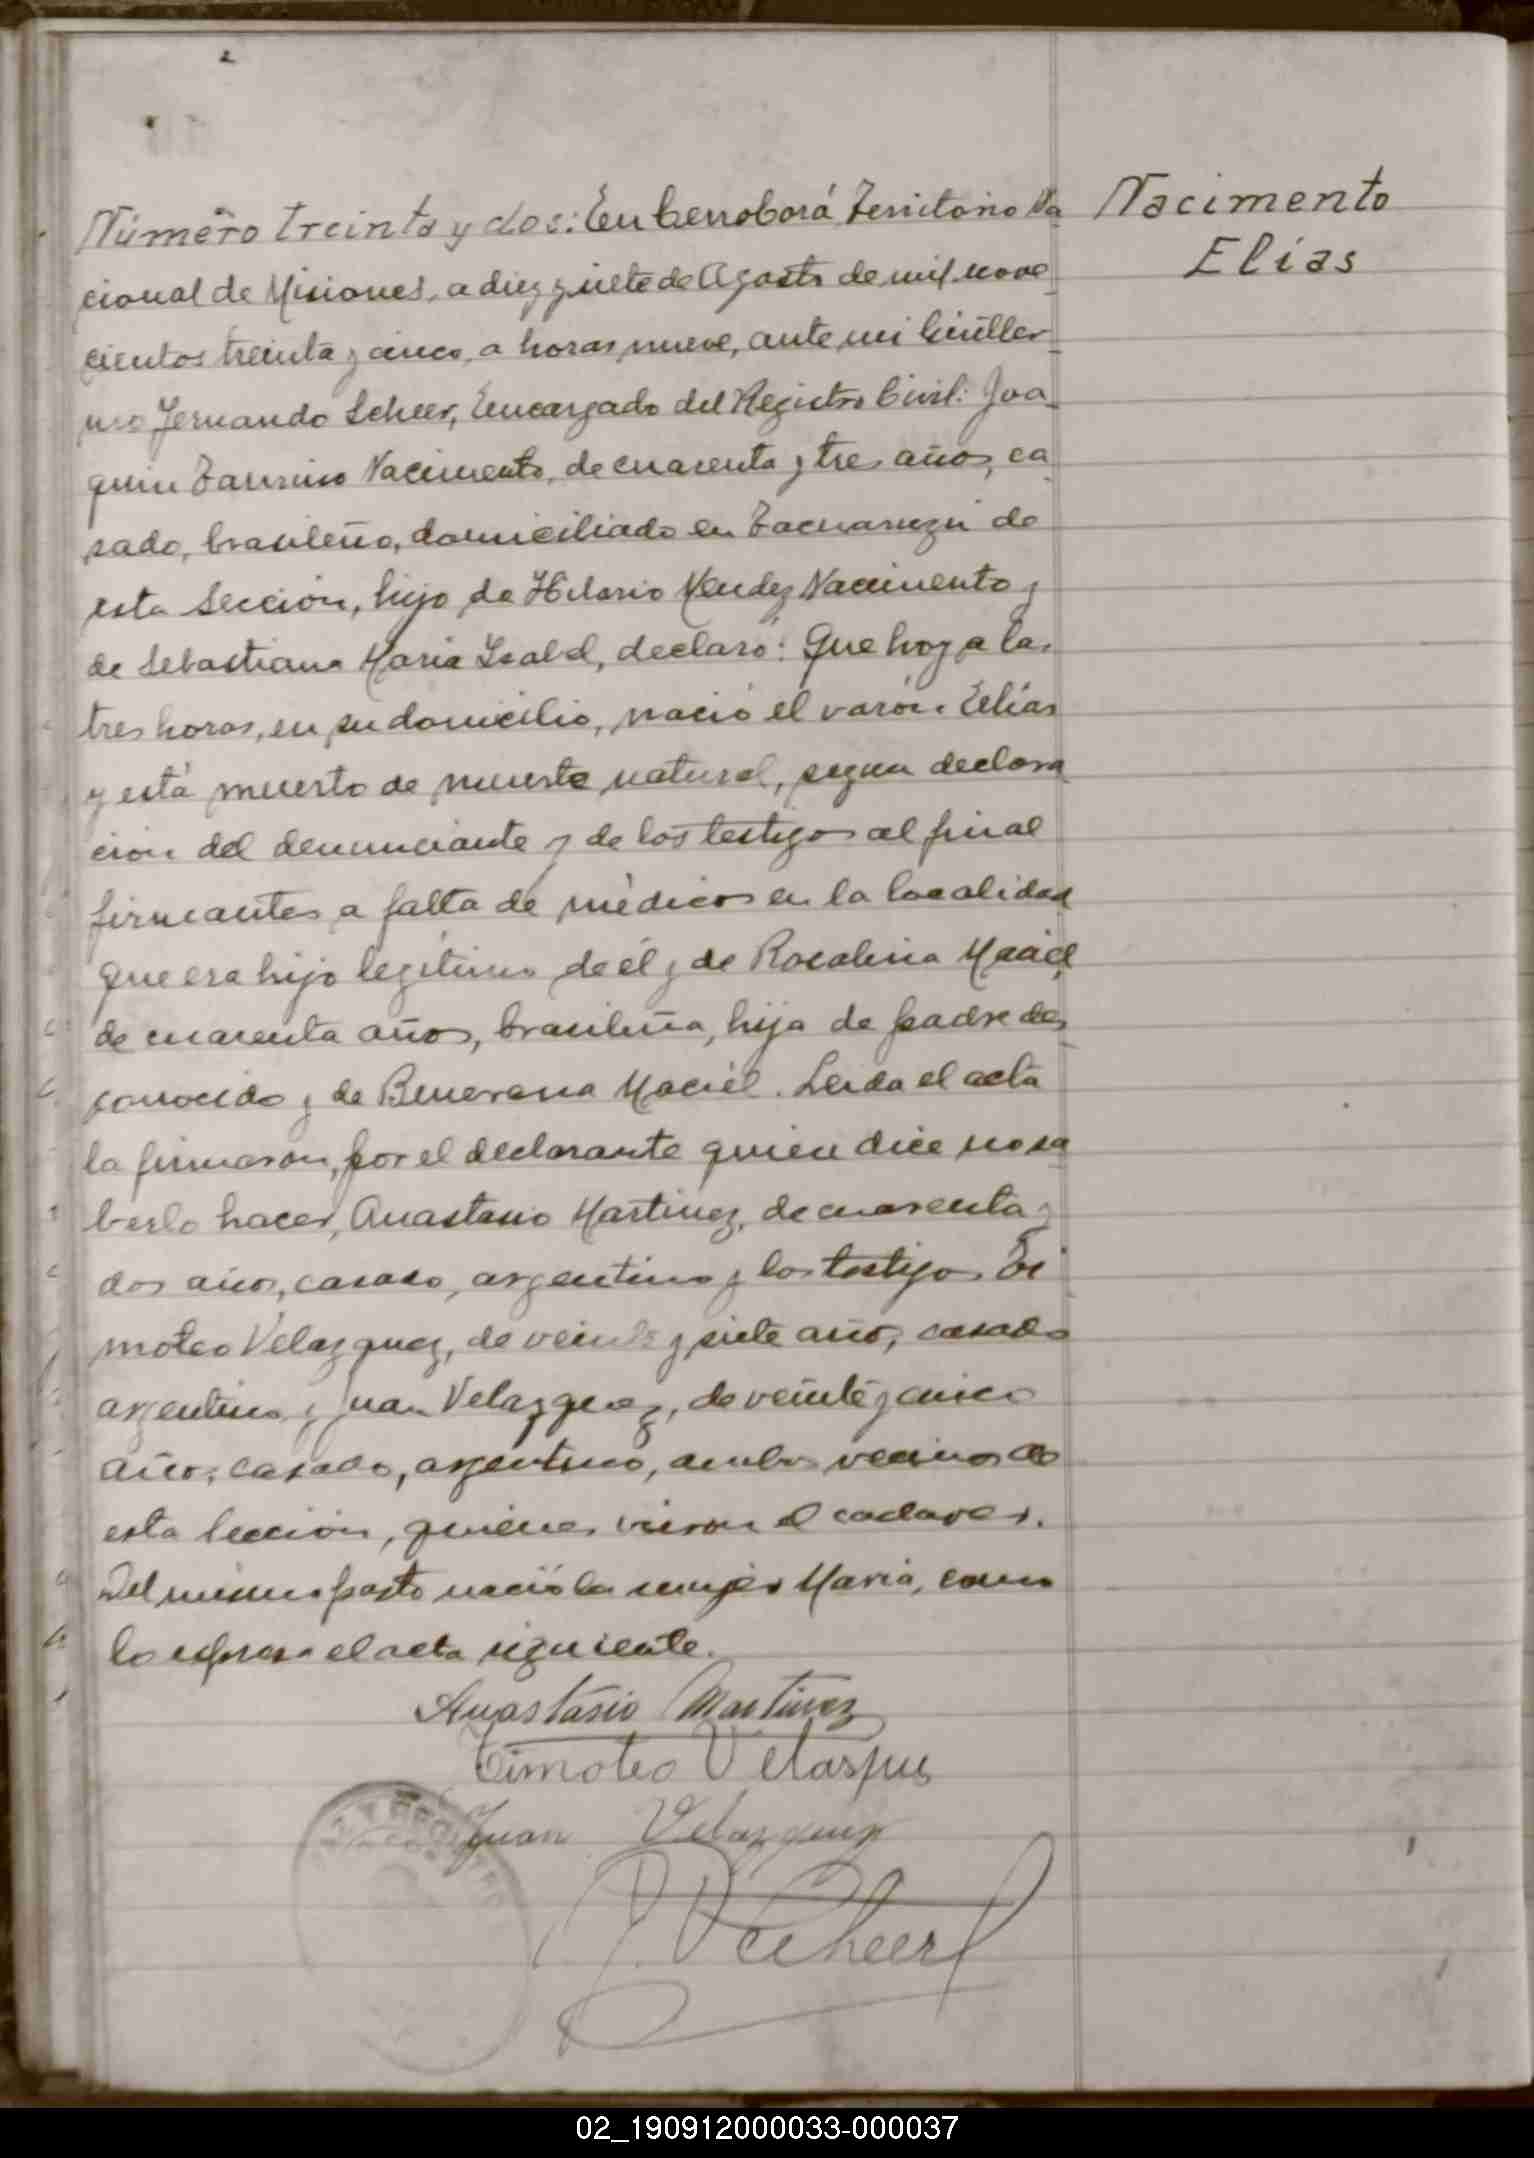 2
Número treinta y dos: En Cerro Corá, Territorio Na
cional de Misiones, a diez y siete de Agosto de mil nove
cientos treinta y cinco, a horas nueve, ante mi Guiller
mo Fernando Scheer, Encargado del Registro Civil: Joa
quin Nacimento, de cuarenta y tres años, ca
sado, brasileño, domiciliado en Tacuaruzú de
esta Sección, hijo de Hilario Mendez Nacimento y
de Sebastiana Maria Isabel, declaró: Que hoy a las
tres horas, en su domicilio, nació el varón Elías
y está muerto de muerte natural, segun declara
cion del denunciante y de los testigos al final
firmantes a falta de médicos en la localidad
que era hijo legítimo de él y de Rosalina Maciel
de cuarenta años, brasileña, hija de padre des
conocido y de Maciel. Leida el acta
la firmaron, por el declarante quien dice no sa
berlo hacer, Anastasio Martinez, de cuarenta y
dos años, casado, argentino y los testigos Ti
moteo Velazquez, de veinte y siete años, casado
argentino y Juan Velazquez, de veinte y cinco
años, casado, argentino, ambos vecinos de
esta Sección, quienes vieron el cadaver.
Del mismo parto nació la mujer Maria, como
lo expresa el acta siguiente.
Anastasio Martinez
Timoteo Velasques
Juan Velazquez
Scheer
Nacimento
Elías
02_190912000033-000037